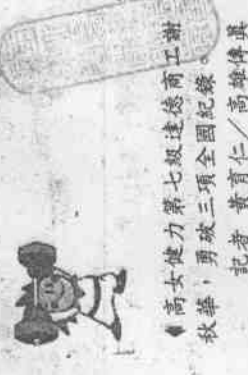 高女健力第七級達德商工謝
秋華，勇破三項全國紀錄。
記者 黃育仁／高雄傳真